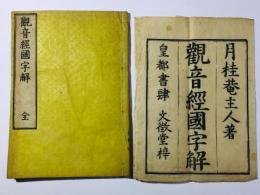 觀音經國字解 全
月桂菴主人著
觀音經國字解
皇都書肆 文徴堂梓